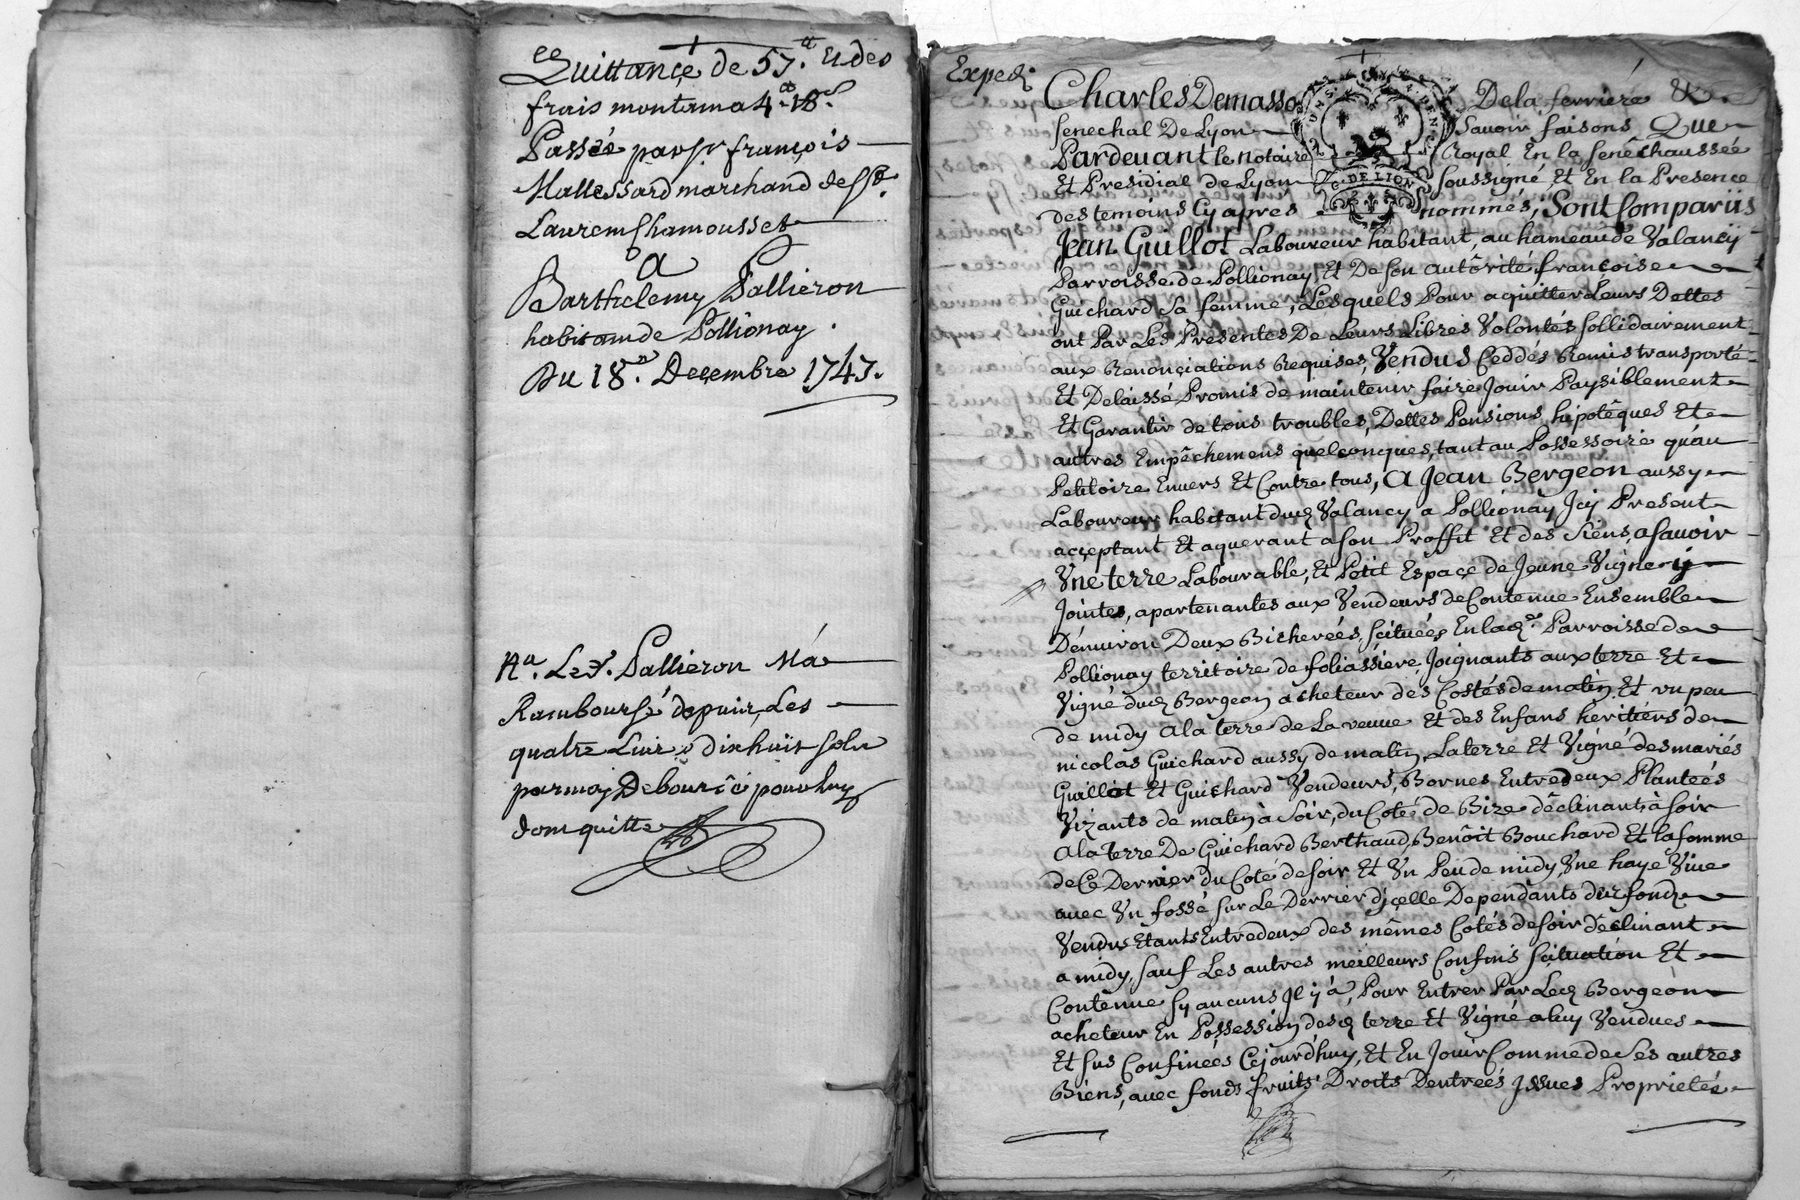 Quittance de 57.tt et des
frais montans a 4.tt 18.s
Passée par sr françois
Mallessard marchand de St.
Laurens Chamousset
a
Barthelemy Pallieron
habitant de Pollionay.
Du 18.e Deçembre 1747.
Na. Led. Pallieron Ma
Rambourse depuis, Les
quatre Livres dixhuit sols
par moy Deboursé pour luy
dont quitte
Exped.
Charles Demasso De la ferriere &c.
senechal De Lyon Savoir faisons, Que
Pardevant le notaire Royal En la senêchaussée
Et Presidial de Lyon soussigné, Et En la Presence
des temoins Cy apres nommés, Sont Comparüs
G. DE LION
Jean Guillot Laboureur habitant, au hameau de Valancÿ
Parroisse de Pollionay, Et De son autôrité françoise
Guichard sa femme, Lesquels Pour aquitter Leurs Dettes
ont Par Les Presentes De Leurs Libres Volontés sollidairement
aux Renonçiations Requises, Vendus Ceddés Remis transporté
Et Delaissé Promis de maintenir faire Jouir Paysiblement
Et Garantir de tous troubles, Dettes Pensions, hipotêques Et
autres Empêchemens quelconques, tant au Possessoire qu'au
Petitoire Envers Et Contre tous, A Jean Bergeon aussy
Laboureur habitant dud. Valancy a Pollionay Jcy Present
acçeptant Et aquerant a son Proffit Et des siens, asavoir
Vne terre Labourable, Et Petit Espaçe de Jeune Vigne y
Jointe, apartenantes aux Vendeurs de Contenue Ensemble
D'Enuiron Deux Bicherées, scituées En lad. Parroisse de
Pollionay territoire de foliassiere, Joignants aux terre Et
Vigne dud. Bergeon acheteur des Costés de matin, Et un peu
de midy a la terre de La veuue Et des Enfans heritiers de
nicolas Guichard aussy de matin, La terre Et Vigne des mariés
Guillot Et Guichard Vendeurs, Bornes Entredeux Plantées
Vizants de matin à soir, du Coté de Bize déclinant à soir
a la terre De Guichard Berthaud, Benôit Bouchard Et la femme
de Ce Dernier du Coté de soir Et Vn Peu de midy, Vne haye Viue
auec Vn fossé sur Le Derrier d'jçelle Dependants dud. fonds
Vendu Etants Entredeux des mêmes Cotés de soir déclinant
a midy, sauf Les autres meilleurs Confins scituation Et
Contenue sy aucuns Jl y à, Pour Entrer Par Led. Bergeon
acheteur En Possession desd. terre Et Vigne a luy Vendues
Et sus Confinées Cejourd'huy, Et En Jouir Comme de ses autres
Biens, auec fonds fruits Droits D'entrées Jssues Proprietés